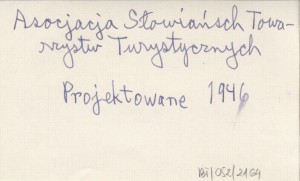 Asocjacja Słowiańsch Towa-
rzystw Turystycznych
Projektowane 1946
BJ/OSŁ/2164